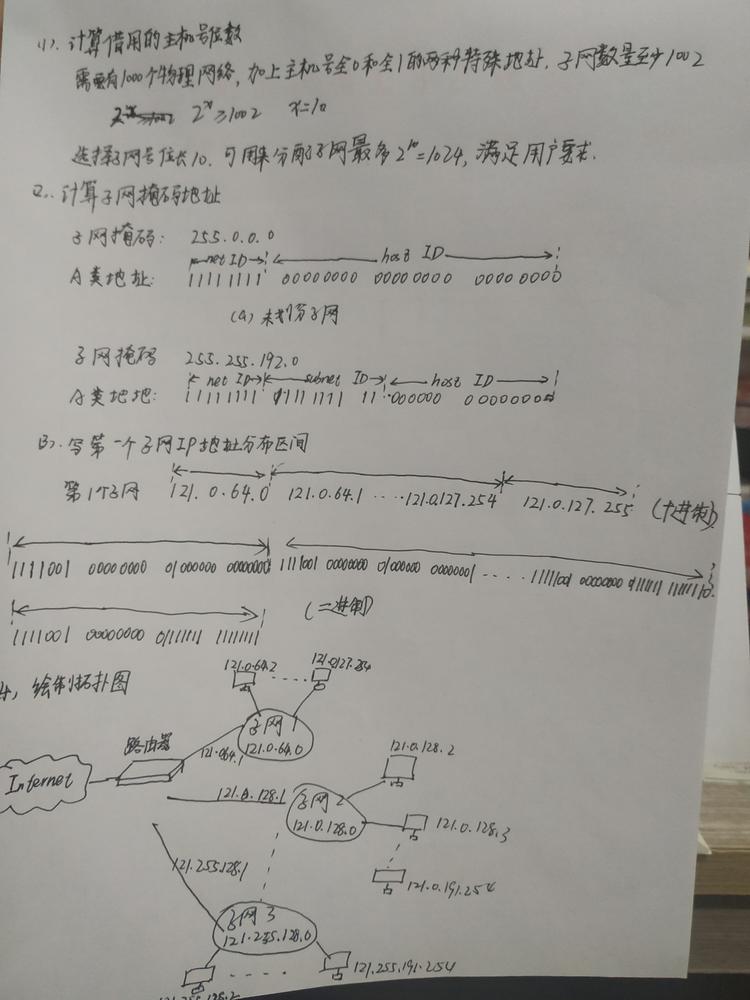 (1). 计算借用的主机号位数
需要有1000个物理网络, 加上主机号全0和全1的两种特殊地址, 子网数量至少1002
2ˣ≥1002 x=10
选择子网号位长10. 可用来分配子网最多2¹⁰=1024, 满足用户要求.
(2). 计算子网掩码地址
子网掩码: 255.0.0.0
net ID host ID
A类地址: 11111111 00000000 00000000 00000000
(a) 未划分子网
子网掩码 255.255.192.0
net ID subnet ID host ID
A类地地: 11111111 11111111 11 000000 00000000
(3). 写第一个子网IP地址分布区间
第1个子网 121.0.64.0 121.0.64.1 ····· 121.0.127.254 121.0.127.255 (十进制)
1111001 00000000 01000000 00000000 1111001 00000000 01000000 00000001 ····· 1111001 00000000 01111111 11111110
1111001 00000000 01111111 11111111 (二进制)
4, 绘制拓扑图
121.0.64.2 121.0.127.254
子网1
121.0.64.0
路由器
121.0.64.1
Internet
121.0.128.2
121.0.128.1
子网2
121.0.128.0
121.0.128.3
121.0.191.254
121.255.128.1
子网3
121.255.128.0
121.255.191.254
121.255.128.2